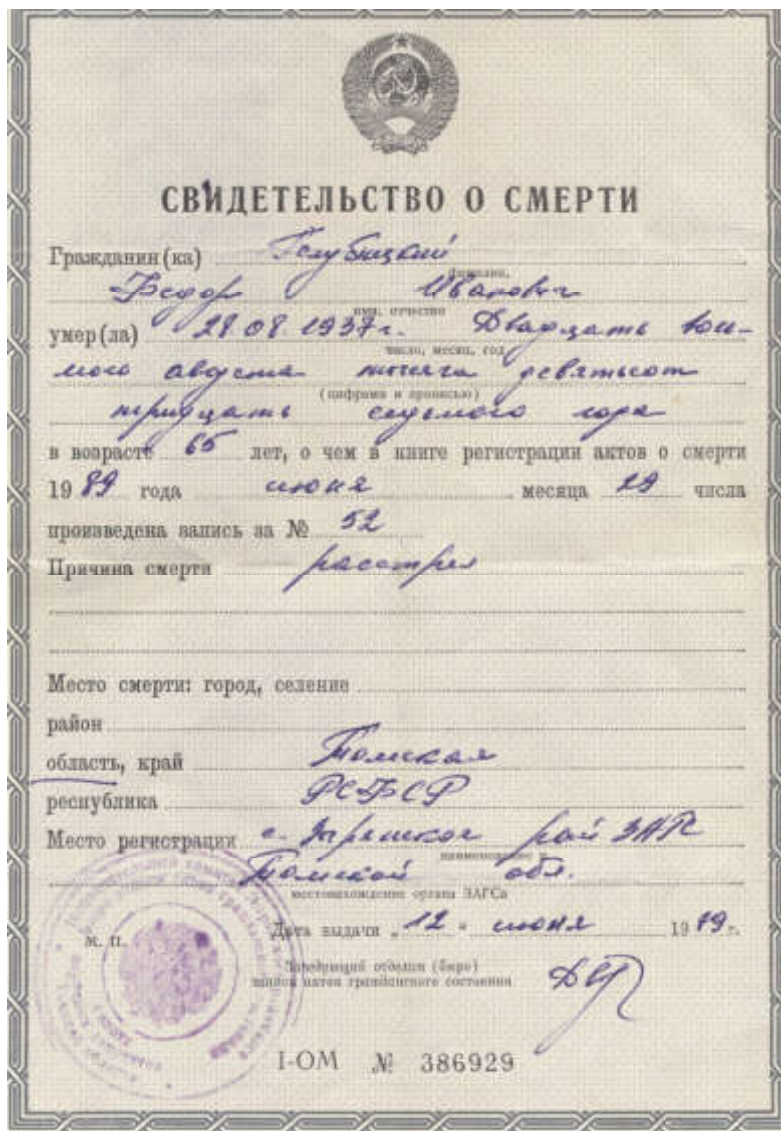 СВИДЕТЕЛЬСТВО О СМЕРТИ
Гражданин(ка) Голубицкий
фамилия,
Федор Иванович
имя, отчество
умер(ла) 28.08.1937г. Двадцать вось-
число, месяц, год
мого августа тысяча девятьсот
(цифрами и прописью)
тридцать седьмого года
в возрасте 65 лет, о чем в книге регистрации актов о смерти
1989 года июня месяца 29 числа
произведена запись за № 52
Причина смерти расстрел
Место смерти: город, селение
район
область, край Томская
республика РСФСР
Место регистрации с. Зырянское рай ЗАГС
наименование и
Томской обл.
местонахождение органа ЗАГСа
Дата выдачи „12" июня 19 г.
м. п.
Заведующий отделом (бюро)
записи актов гражданского состояния
I-ОМ № 386929